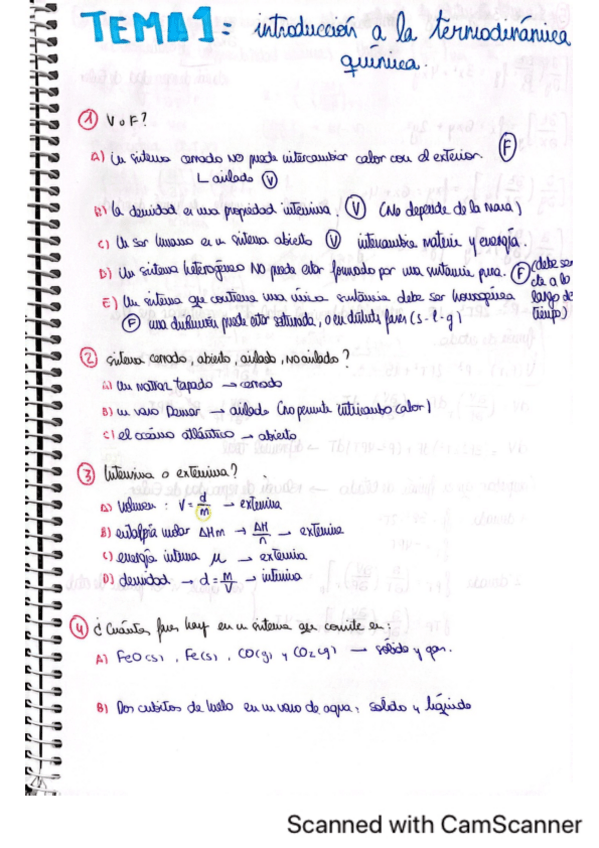 TEMA 1 = introducción a la termodinámica
química.
① V o F?
A) Un sistema cerrado NO puede intercambiar calor con el exterior. (F)
∟ aislado (V)
B) la densidad es una propiedad intensiva. (V) (No depende de la masa)
C) Un ser humano es un sistema abierto (V) intercambia materia y energía.
D) Un sistema heterogéneo NO puede estar formado por una sustancia pura. (F) (debe ser
cte a lo
largo del
tiempo)
E) Un sistema que contiene una única sustancia debe ser homogénea
(F) una disolución puede estar saturada, o en distintas fases (s-l-g)
② sistema cerrado, abierto, aislado, no aislado?
A) Un matraz tapado → cerrado
B) un vaso Dewar → aislado (no permite intercambio calor)
C) el océano atlántico → abierto
③ Intensiva o extensiva?
A) Volumen : V = d/m → extensiva
B) entalpía molar ΔHm → ΔH/n → extensiva
C) energía interna μ → extensiva
D) densidad → d = M/V → intensiva
④ ¿Cuántas fases hay en un sistema que consiste en:
A) FeO(s), Fe(s), CO(g) y CO2(g) → sólido y gas.
B) Dos cubitos de hielo en un vaso de agua: solido y líquido
Scanned with CamScanner